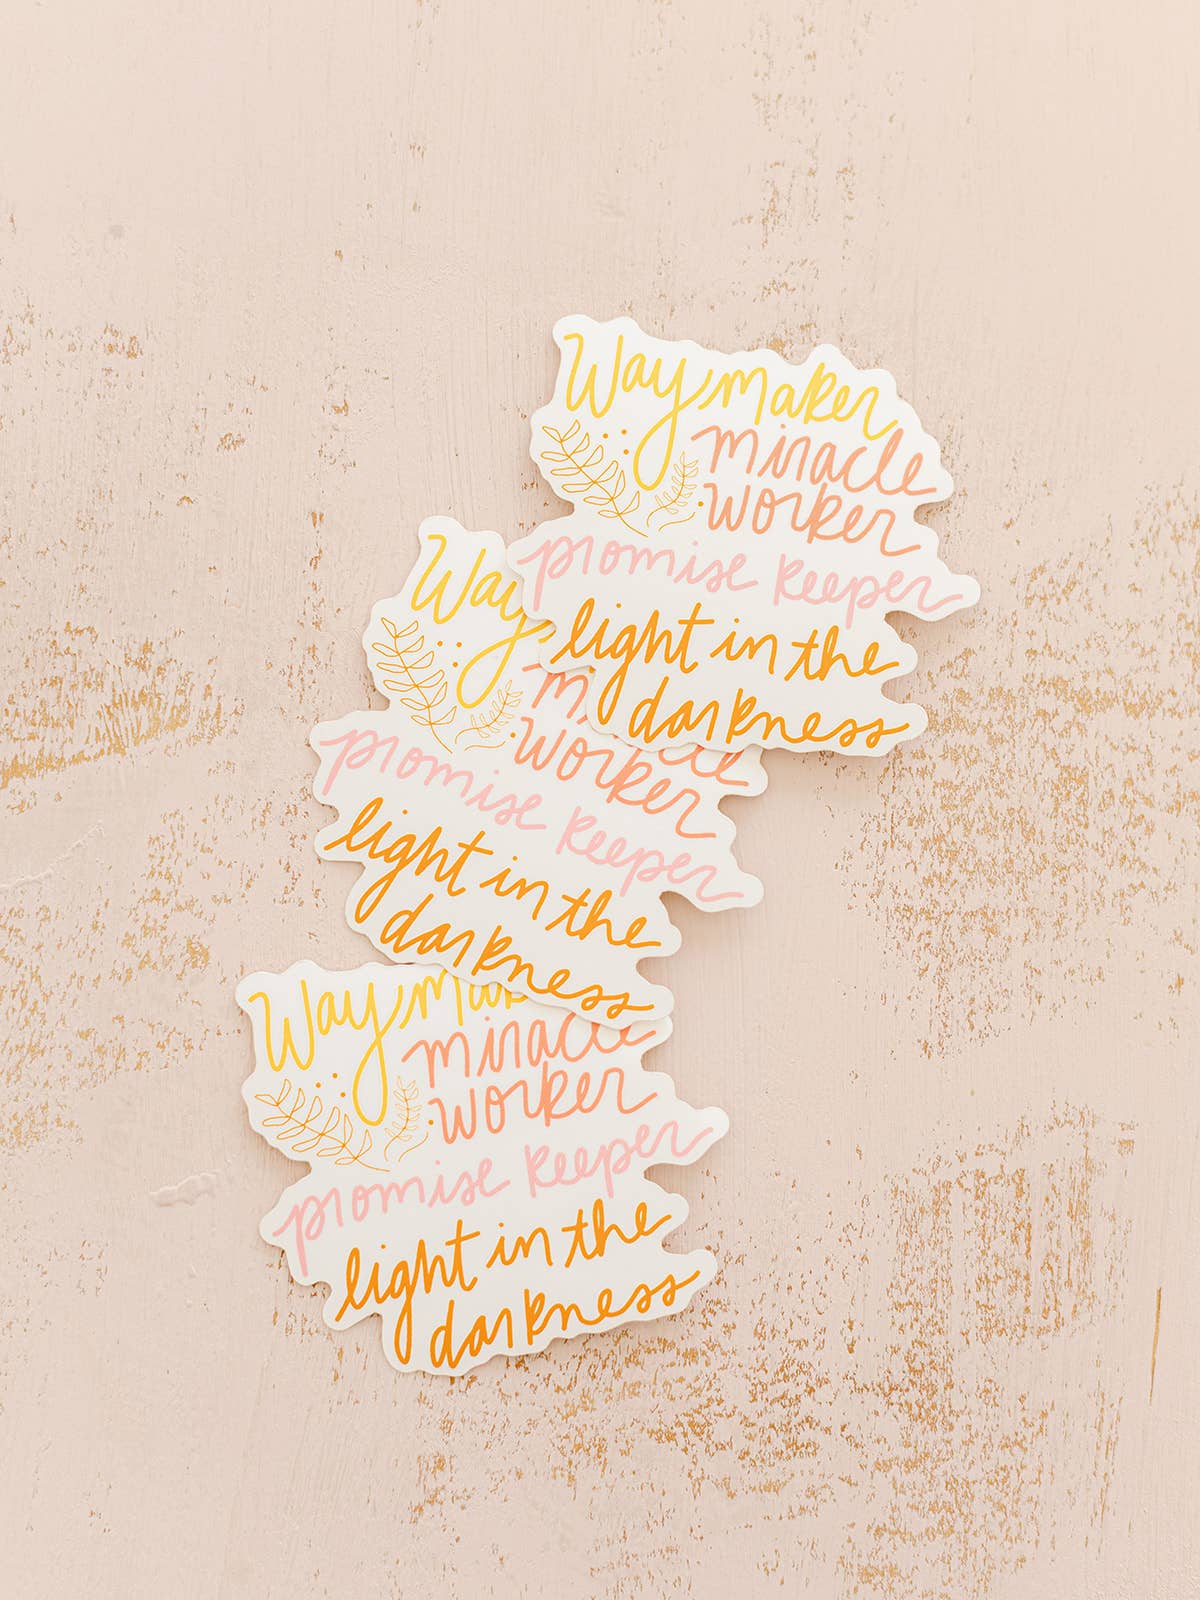 Way maker
miracle
worker
promise keeper
light in the
darkness
Way
worker
promise keeper
light in the
darkness
Way
miracle
worker
promise keeper
light in the
darkness